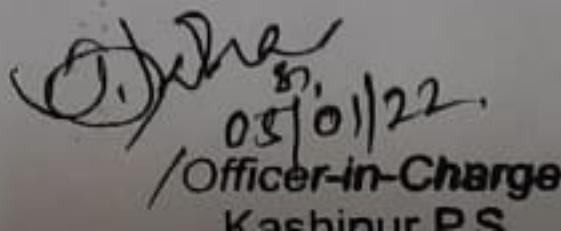 05/01/22.
/Officer-in-Charge
Kashipur P.S.